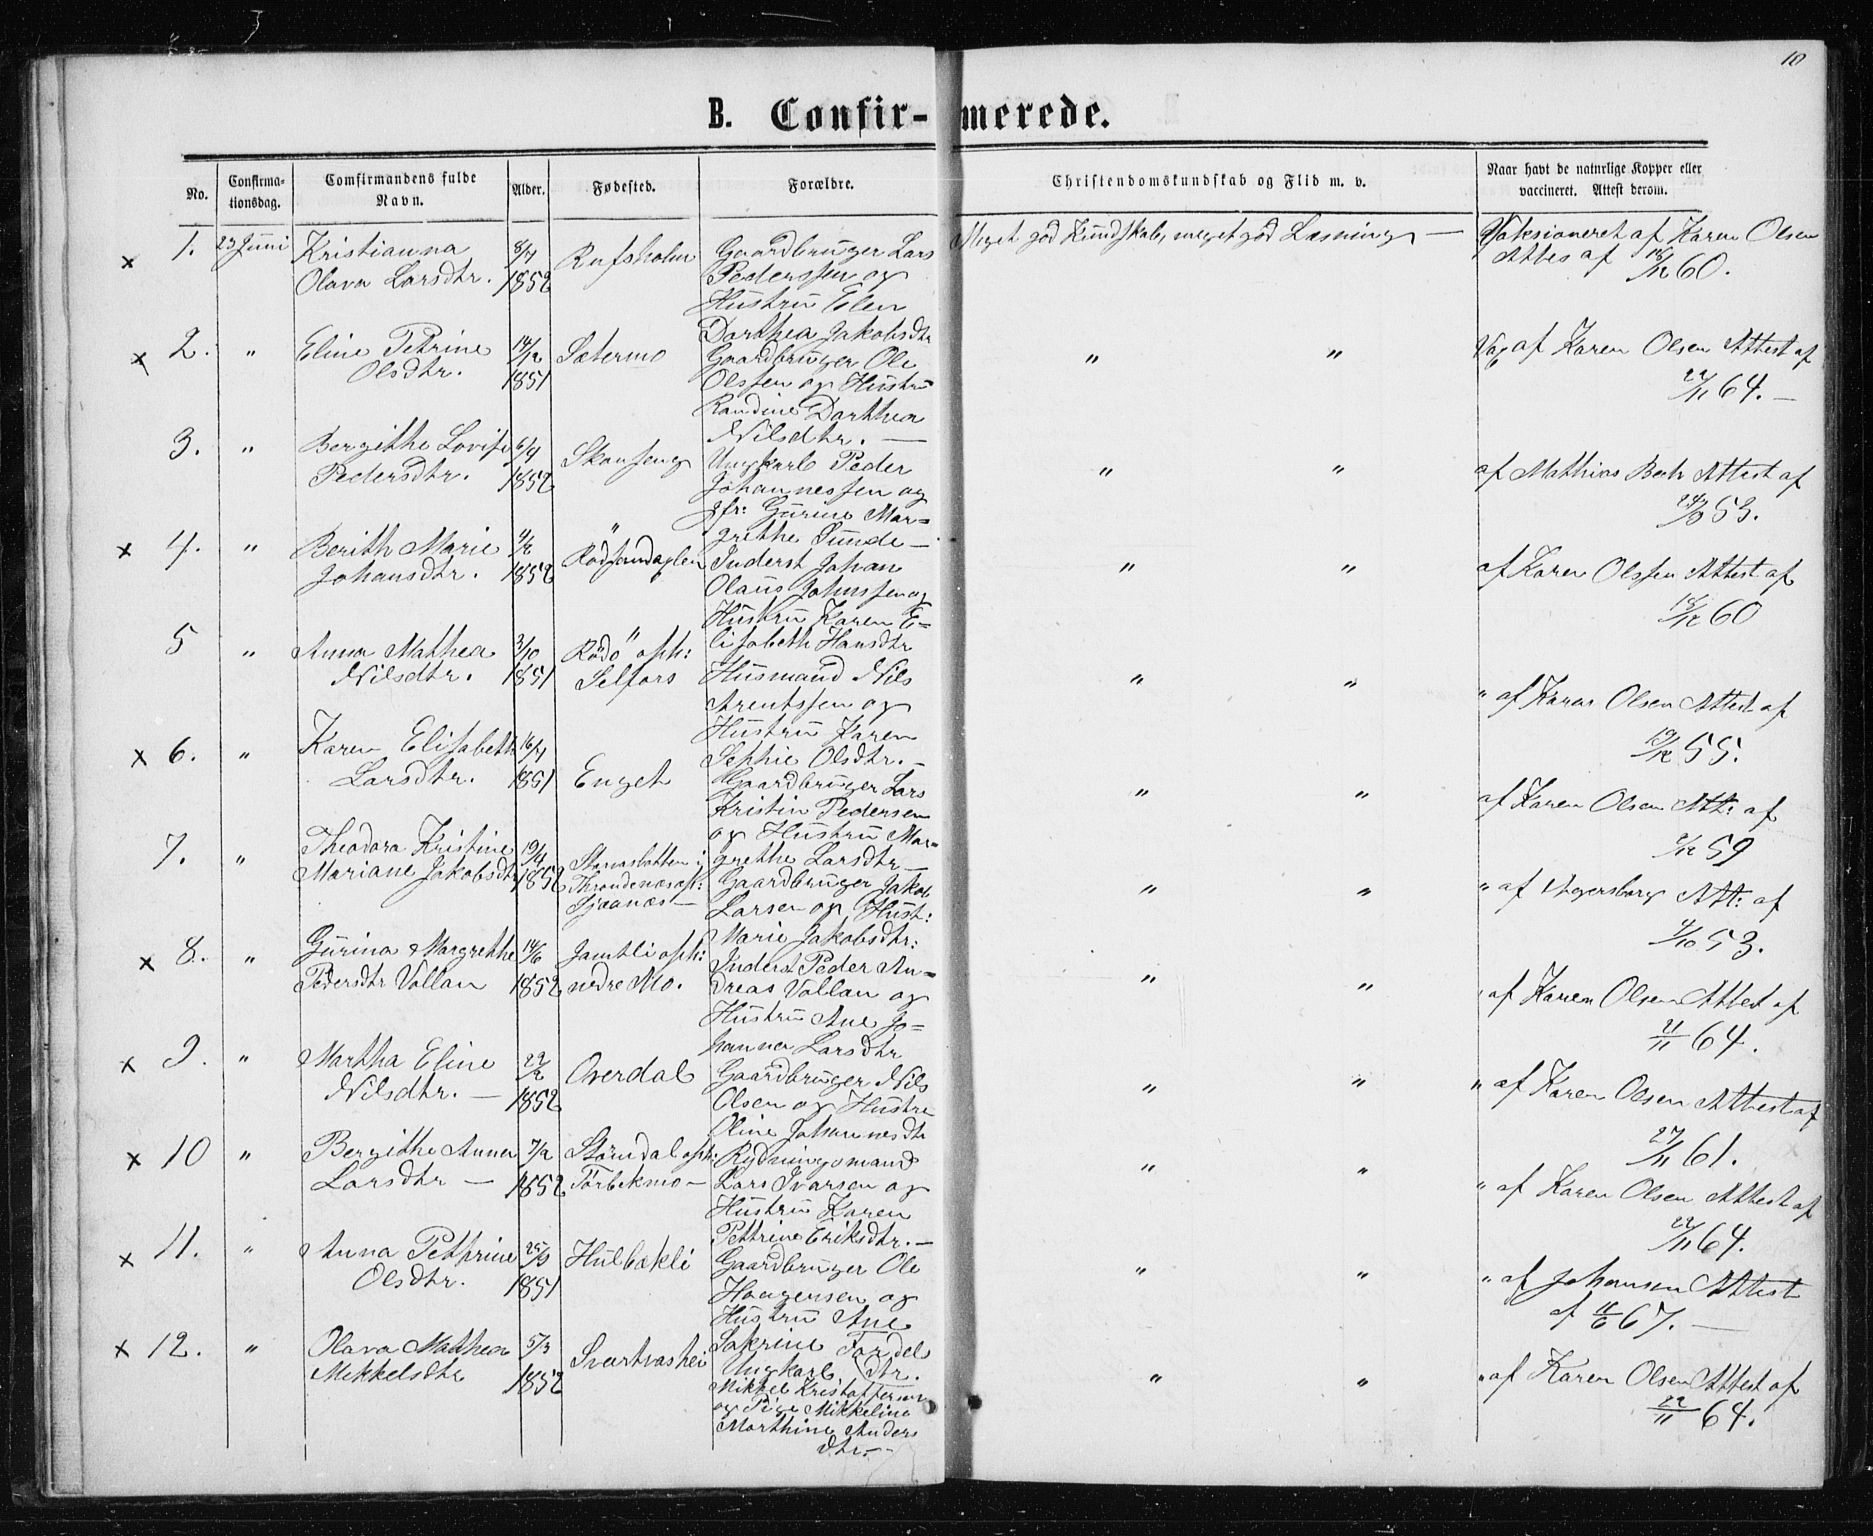 10
B. Confir-merede.
No.
Confirma-
tionsdag.
Comfirmandens fulde
Navn.
Alder.
Fødested.
Forældre.
Christendomskundskab og Flid m. v.
Naar havt de naturlige Kopper eller
vaccineret. Attest derom.
x 1. 23 Juni
Kristianna
Olava Larsdtr.
8/7
1852
Gaardbruger Lars
Pederssen og
Hustru Elen
Dorthea Jakobsdtr
Meget god Kundskab, meget god Læsning —
Vaksioneret af Karen Olsen
Attes af 18/12 60.
x 2. "
Eline Petrine
Olsdtr.
14/12
1851
Sætermo
Gaardbruger Ole
Olssen og Hustru
Randine Dorthea
Nilsdtr. —
" "
Vac af Karen Olsen Attest af
22/11 64. —
3. "
Bergithe Lovise
Pedersdtr.
6/4
1852
Skonseng
Ungkarl Peder
Johannessen og
Mar=
grethe Sunde —
" "
af Mathias Bech Attest af
53.
x 4. "
Berith Marie
Johansdtr.
4/2
1852
Inderst Johan
Olaus Johnssen og
Hustru Karen E=
lisabeth Hansdtr
" "
af Karen Olssen Attest af
18/12 60
5 "
Anna Mathea
Nilsdtr.
3/10
1851
Rödö opv:
Selfors
Husmand Nils
Arentssen og
Hustru Karen
Sophie Olsdtr. —
" "
" af Karen Olsen Attest af
19/12 55.
x 6. "
Karen Elisabeth
Larsdtr.
16/7
1851
Enget
Gaardbruger Lars
Kristin Pedersen
og Hustru Mar=
grethe Larsdtr —
" "
af Karen Olsen Att: af
59
7. "
Theodora Kristine
Mariane Jakobsdtr
19/4
1852
Gaardbruger Jakob
Larsen og Hust:
Marie Jakobsdtr:
" "
" af Att: af
53.
x 8. "
Gurina Margrethe
Pedersdtr Vollan
14/6
1852
Jamtli opv:
nedre Mo.
Inderst Peder An=
dreas Vollan og
Hustru Ane Jo=
hanna Larsdtr
" "
" af Karen Olsen Attest af
21/11 64.
x 9. "
Martha Eline
Nilsdtr. —
22/2
1852
Overdal
Gaardbruger Nils
Olsen og Hustru
Oline Johannesdtr
" "
" af Karen Olsen Attest af
27/11 61.
x 10 "
Bergithe Anna
Larsdtr —
7/2
1852
Rydningsmand
Lars Ivarsen og
Hustru Karen
Pettrine Eriksdtr. —
" "
" af Karen Olsen Attest af
22/11 64.
x 11. "
Anna Petrine
Olsdtr.
25/9
1851
Hulbækli
Gaardbruger Ole
Haagensen og
Hustru Ane
" "
" af Johansen Attest
af 67. —
x 12. "
Olava Mathea
Mikkelsdtr
5/3
1852
Svartvashei
Ungkarl
Mikkel Kristoffersen
og Pige Mikkeline
Marthine Anders
dtr. —
" "
" af Karen Olsen Attest af
22/11 64.